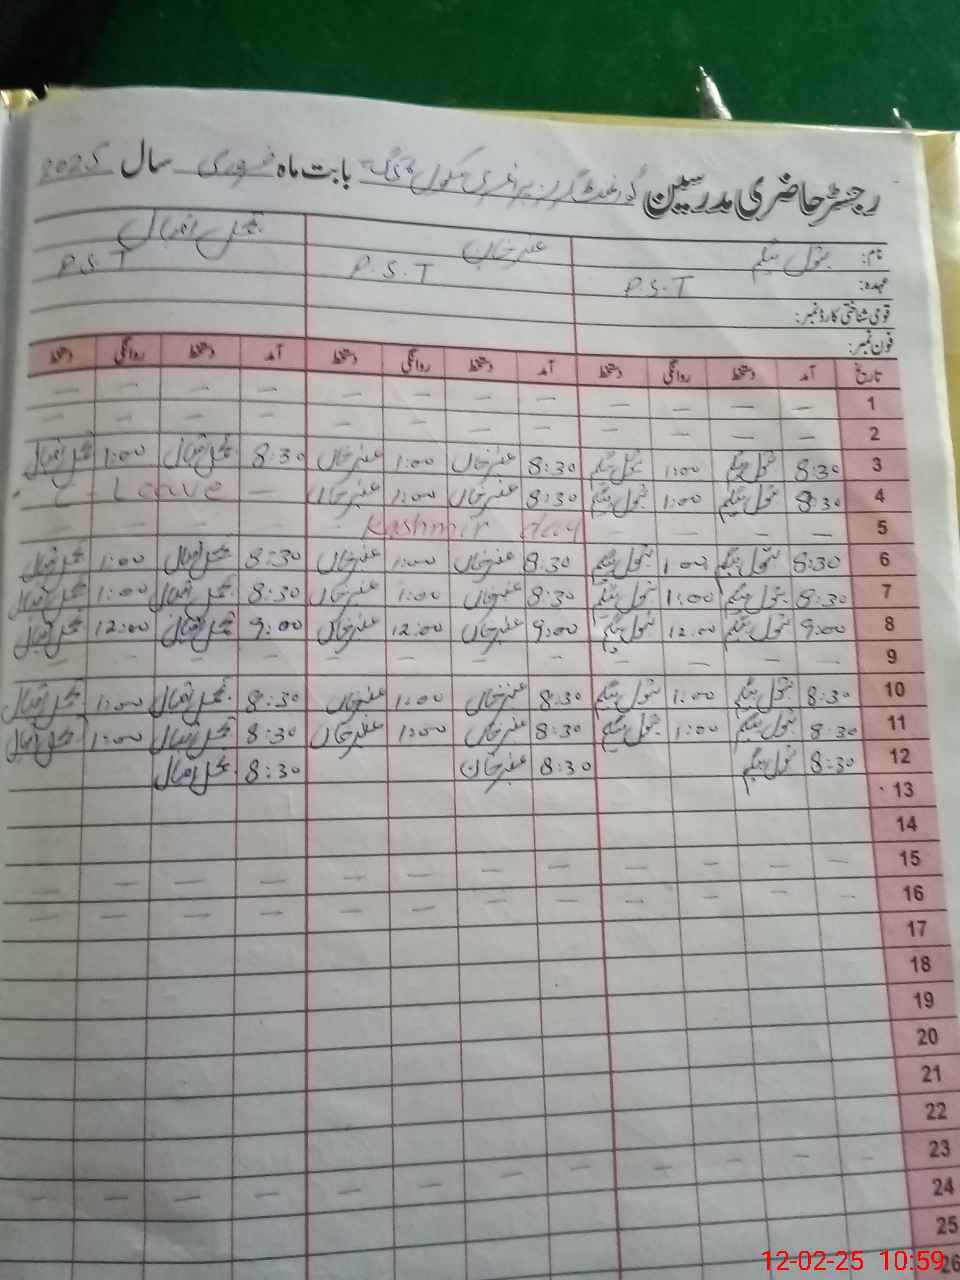 رجسٹر حاضری مدرسین گورنمنٹ گرلز پرائمری سکول بابت ماہ فروری سال 2025
نام: بتول بیگم عنبر خان اقبال
عہدہ: P.S.T P.S.T P.S.T
قومی شناختی کارڈ نمبر:
فون نمبر:
تاریخ آمد دستخط روانگی دستخط آمد دستخط روانگی دستخط آمد دستخط روانگی دستخط
1 — — — — — — — — — — — —
2 — — — — — — — — — — — —
3 8:30 بتول بیگم 1:00 بتول بیگم 8:30 عنبر خان 1:00 عنبر خان 8:30 اقبال 1:00 اقبال
4 8:30 بتول بیگم 1:00 بتول بیگم 8:30 عنبر خان 1:00 عنبر خان — C - Leave
5 — — — — Kashmir day — — — —
6 8:30 بتول بیگم 1:00 بتول بیگم 8:30 عنبر خان 1:00 عنبر خان 8:30 اقبال 1:00 اقبال
7 8:30 بتول بیگم 1:00 بتول بیگم 8:30 عنبر خان 1:00 عنبر خان 8:30 اقبال 1:00 اقبال
8 9:00 بتول بیگم 12:00 بتول بیگم 9:00 عنبر خان 12:00 عنبر خان 9:00 اقبال 12:00 اقبال
9 — — — — — — — — — — — —
10 8:30 بتول بیگم 1:00 بتول بیگم 8:30 عنبر خان 1:00 عنبر خان 8:30 اقبال 1:00 اقبال
11 8:30 بتول بیگم 1:00 بتول بیگم 8:30 عنبر خان 1:00 عنبر خان 8:30 اقبال 1:00 اقبال
12 8:30 بتول بیگم 8:30 عنبر خان 8:30 اقبال
13
14
15 — — — — — — — — — — — —
16 — — — — — — — — — — — —
17
18
19
20
21
22
23 — — — — — — — — — — — —
24
25
26
12-02-25 10:59